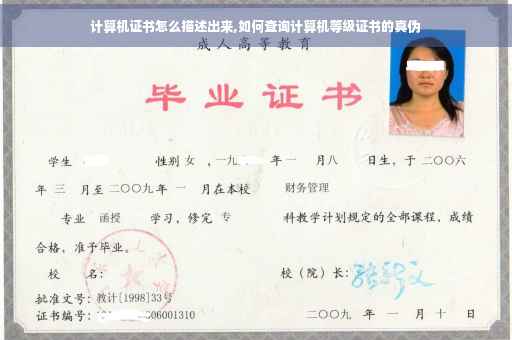 计算机证书怎么描述出来,如何查询计算机等级证书的真伪
成人高等教育
毕业证书
学生 性别 女 ,一九 年 一 月八 日生，于 二〇〇六
年 三 月至 二〇〇九 年 一 月在本校 财务管理
专业 函授 学习，修完 专 科教学计划规定的全部课程，成绩
合格，准予毕业。
校 名： 校（院）长：
批准文号：教计[1998]33号
证书编号： 06001310 二〇〇九 年 一 月 十 日